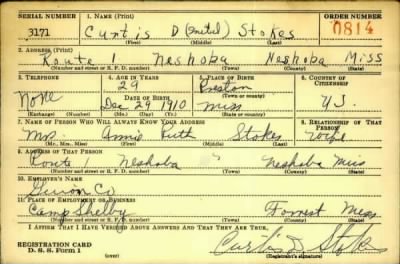 SERIAL NUMBER 1. NAME (Print) ORDER NUMBER
3171 Curtis D (Initial) Stokes 0814
(First) (Middle) (Last)
2. ADDRESS (Print)
Route 1. Neshoba Neshoba Miss
(Number and street or R. F. D. number) (Town) (County) (State)
3. TELEPHONE 4. AGE IN YEARS 5. PLACE OF BIRTH 6. COUNTRY OF CITIZENSHIP
29 Preston
DATE OF BIRTH (Town or county)
None Dec 29 1910 Miss U.S.
(Exchange) (Number) (Mo.) (Day) (Yr.) (State or country)
7. NAME OF PERSON WHO WILL ALWAYS KNOW YOUR ADDRESS 8. RELATIONSHIP OF THAT PERSON
Mrs. Annie Ruth Stokes Wife
(Mr., Mrs., Miss) (First) (Middle) (Last)
9. ADDRESS OF THAT PERSON
Route 1 Neshoba Neshoba Miss
(Number and street or R. F. D. number) (Town) (County) (State)
10. EMPLOYER'S NAME
Co
11. PLACE OF EMPLOYMENT OR BUSINESS
Camp Shelby Forrest Miss
(Number and street or R. F. D. number) (Town) (County) (State)
I AFFIRM THAT I HAVE VERIFIED ABOVE ANSWERS AND THAT THEY ARE TRUE.
REGISTRATION CARD Curtis D. Stokes
D. S. S. Form 1 (over) (Registrant's signature)